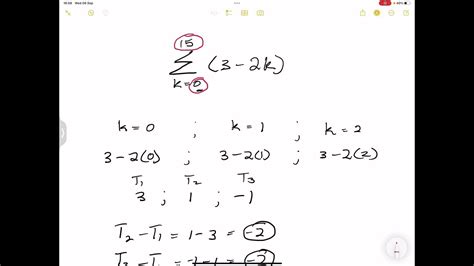 15
Σ (3-2k)
k=0
k=0 ; k=1 ; k=2
3-2(0) ; 3-2(1) ; 3-2(2)
T₁ T₂ T₃
3 ; 1 ; -1
T₂-T₁ = 1-3 = -2
T₃-T₂ = -1-1 = -2